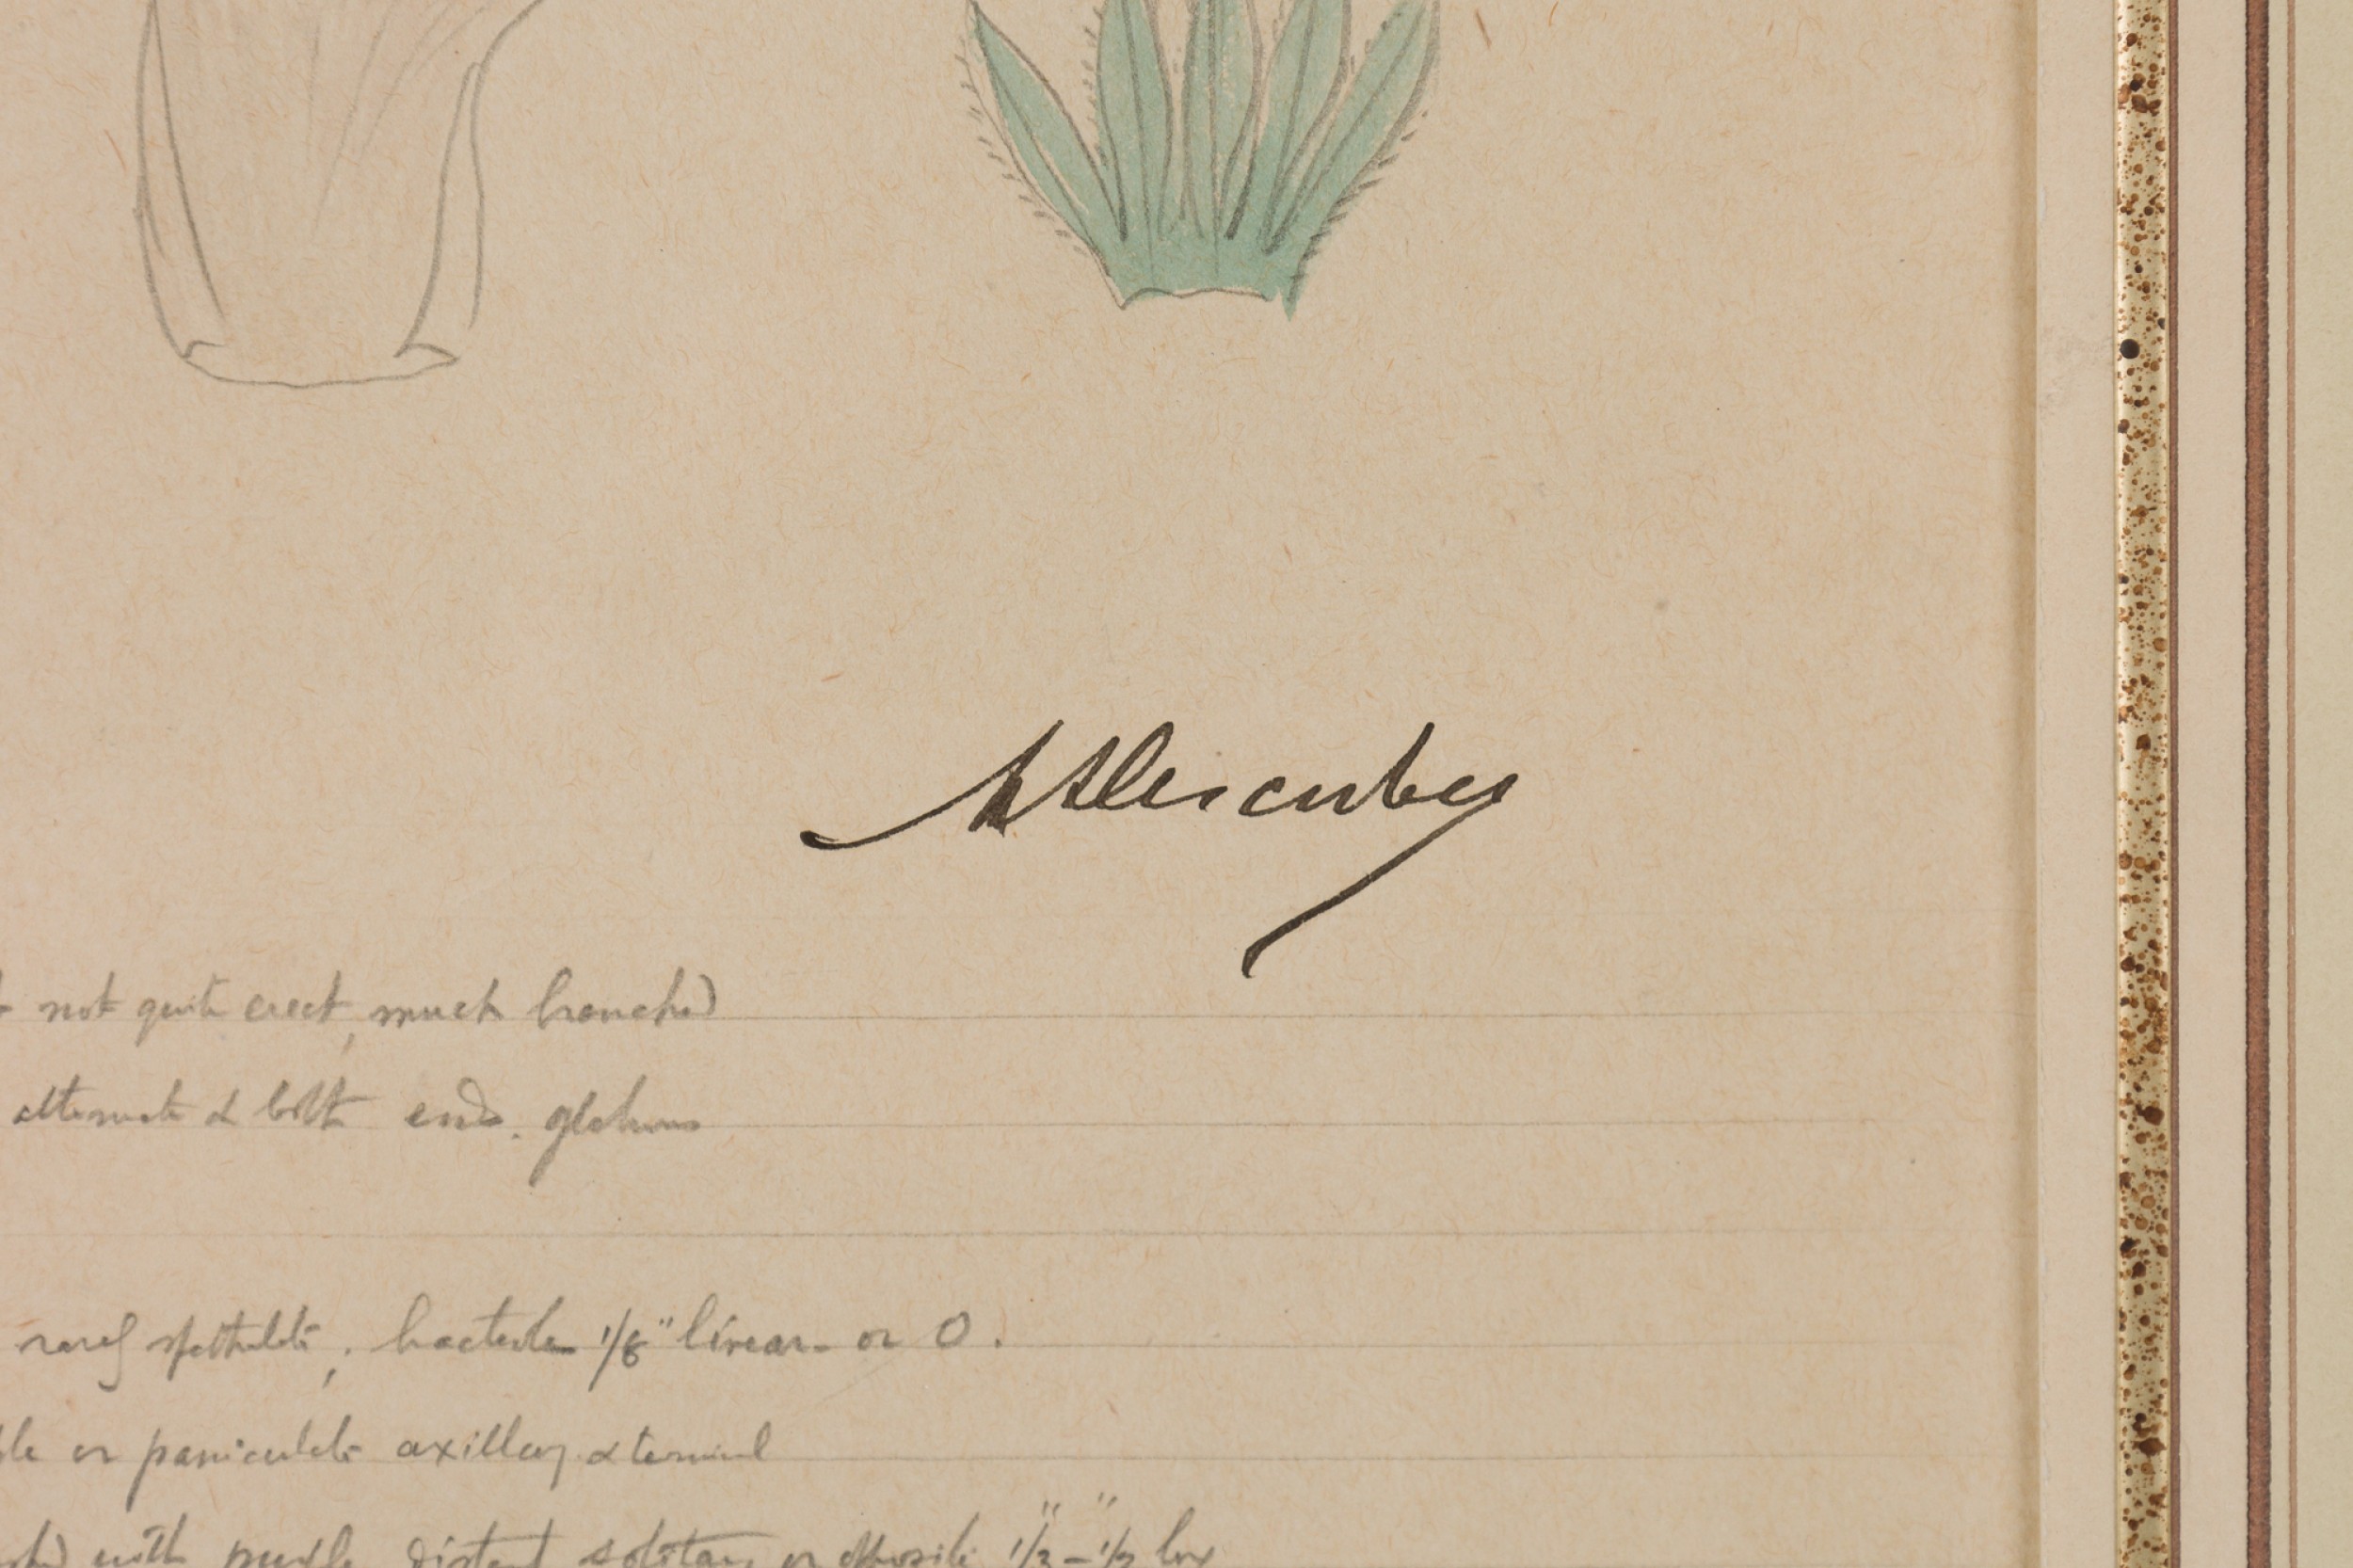 not quite erect, much branched
alternate & both end. glabrous
rarely spathulate; bracteole 1/8" linear - or O.
or paniculate axillary & terminal
with purple distant solitary or opposite 1/3"-1/2"